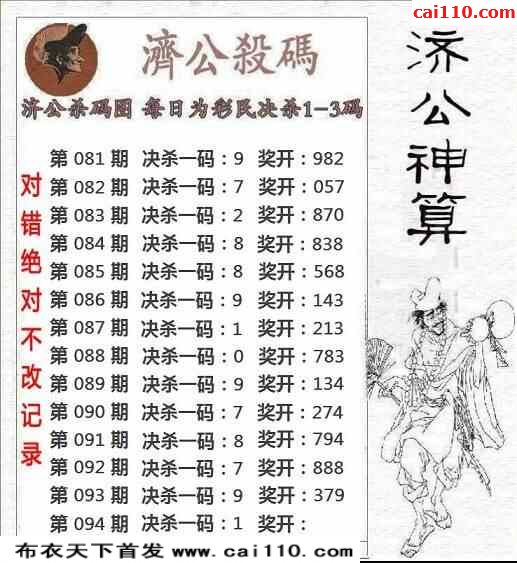 cai110.com
濟公殺碼
济公杀码图 每日为彩民决杀1-3码
济公神算
对错绝对不改记录
第 081 期 决杀一码：9 奖开：982
第 082 期 决杀一码：7 奖开：057
第 083 期 决杀一码：2 奖开：870
第 084 期 决杀一码：8 奖开：838
第 085 期 决杀一码：8 奖开：568
第 086 期 决杀一码：9 奖开：143
第 087 期 决杀一码：1 奖开：213
第 088 期 决杀一码：0 奖开：783
第 089 期 决杀一码：9 奖开：134
第 090 期 决杀一码：7 奖开：274
第 091 期 决杀一码：8 奖开：794
第 092 期 决杀一码：7 奖开：888
第 093 期 决杀一码：9 奖开：379
第 094 期 决杀一码：1 奖开：
布衣天下首发 www.cai110.com